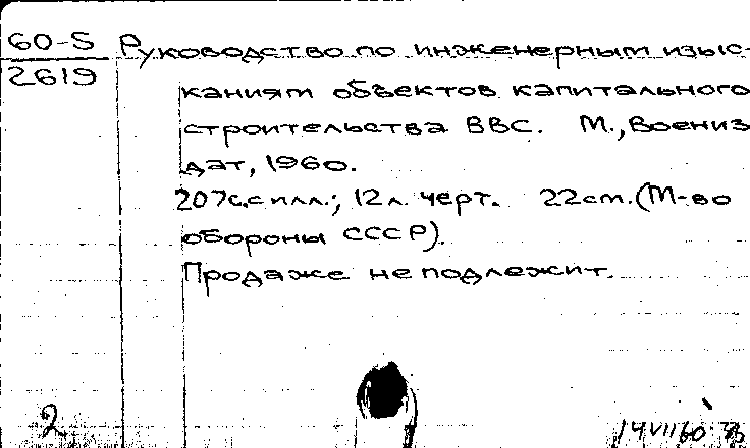 60-5 Руководство по инженерным изыс-
2619
каниям объектов капитального
строительства ВВС. М., Воениз
дат, 1960.
207с.с илл.; 12л. черт. 22см. (М-во
обороны СССР).
Продаже не подлежит.
2
14 VII 60